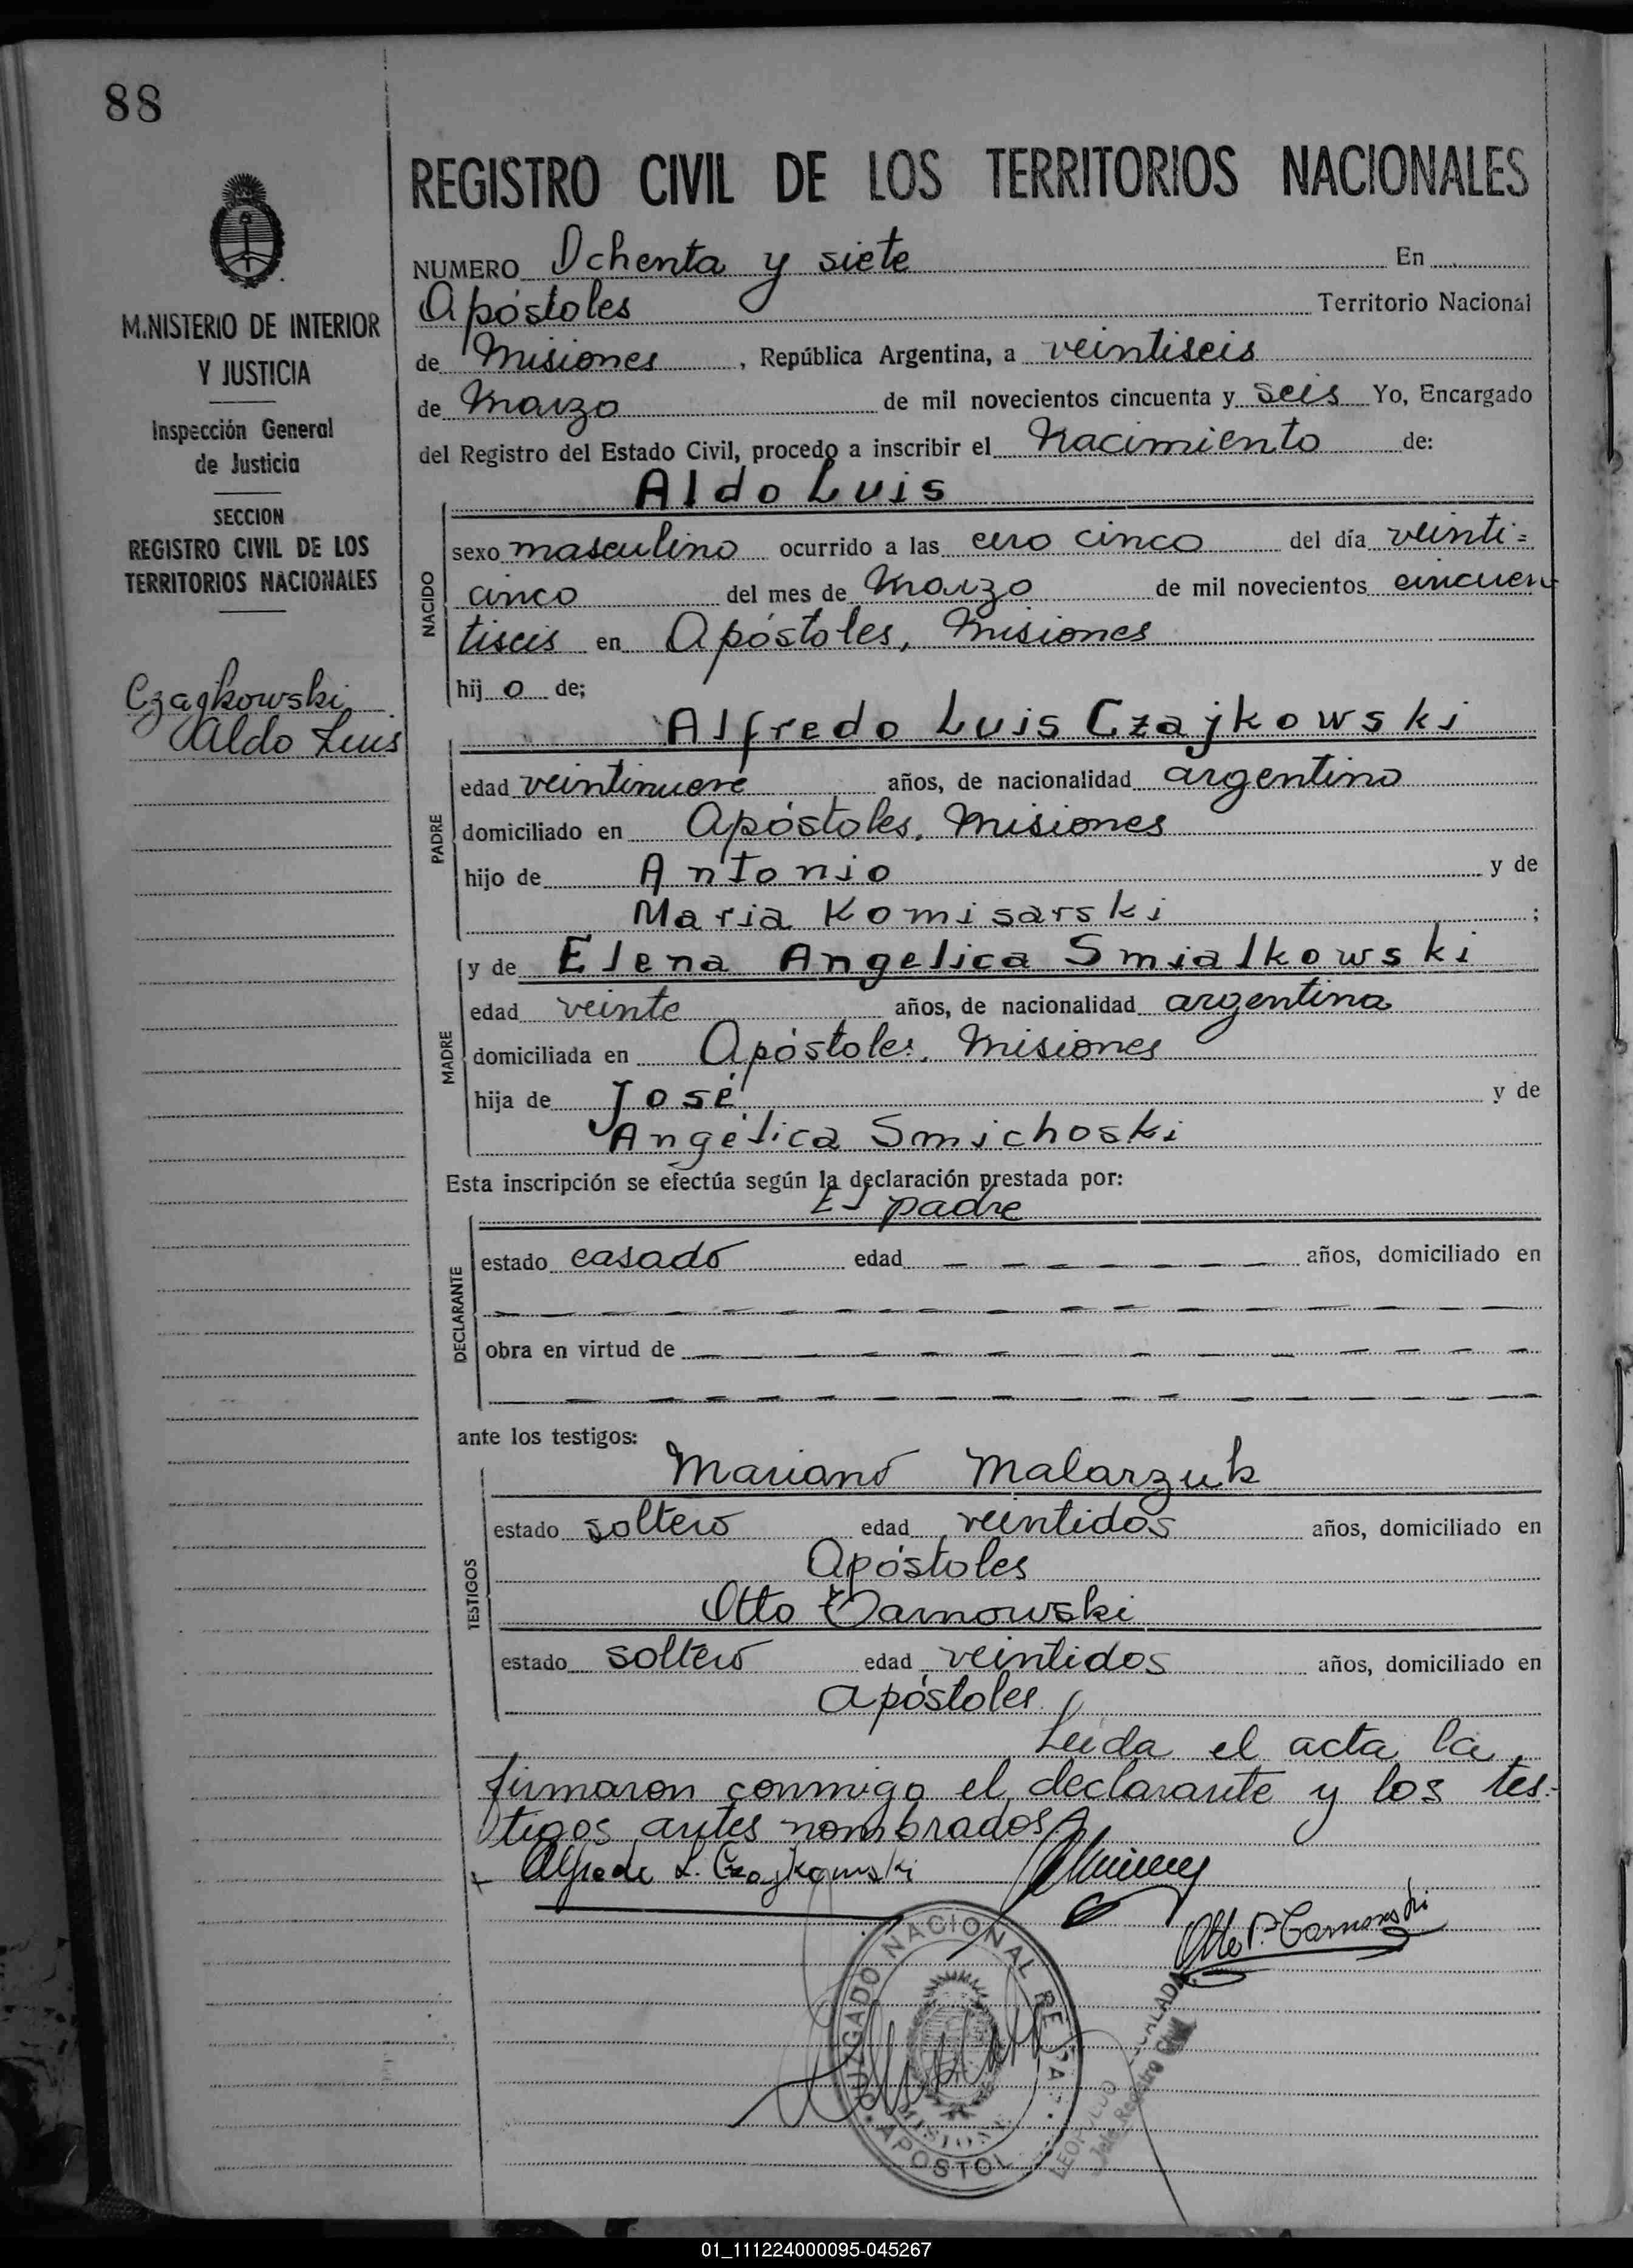 88
REGISTRO CIVIL DE LOS TERRITORIOS NACIONALES
M.NISTERIO DE INTERIOR
Y JUSTICIA
Inspección General
de Justicia
SECCION
REGISTRO CIVIL DE LOS
TERRITORIOS NACIONALES
Czajkowski
Aldo Luis
NUMERO Ochenta y siete En
Apóstoles Territorio Nacional
de Misiones, República Argentina, a veintiseis
de Marzo de mil novecientos cincuenta y seis Yo, Encargado
del Registro del Estado Civil, procedo a inscribir el Nacimiento de:
Aldo Luis
NACIDO
sexo masculino ocurrido a las cero cinco del día veinti=
cinco del mes de Marzo de mil novecientos cincuen
tiseis en Apóstoles, Misiones
hij o de;
Alfredo Luis Czajkowski
PADRE
edad veintinueve años, de nacionalidad argentino
domiciliado en Apóstoles, Misiones
hijo de Antonio y de
Maria Komisarski ;
y de Elena Angelica Smialkowski
MADRE
edad veinte años, de nacionalidad argentina
domiciliada en Apóstoles, Misiones
hija de José y de
Angélica Smichoski
Esta inscripción se efectúa según la declaración prestada por:
El padre
DECLARANTE
estado casado edad — — — — — — años, domiciliado en
obra en virtud de
ante los testigos:
Mariano Malarzuk
TESTIGOS
estado soltero edad veintidos años, domiciliado en
Apóstoles
Otto Tarnowski
estado soltero edad veintidos años, domiciliado en
Apóstoles
Leida el acta la
firmaron conmigo el declarante y los tes=
tigos antes nombrados
Alfredo L. Czajkowski
Otto P. Tarnowski
JUZGADO NACIONAL DE PAZ
MISIONES
APOSTOLES
Jefe Registro Civil
01_111224000095-045267